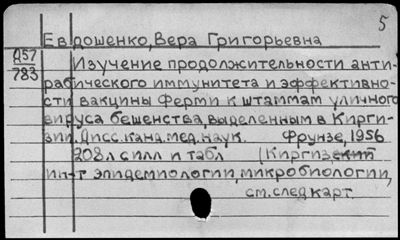 5
Евдошенко, Вера Григорьевна
Д57
783
Изучение продолжительности анти-
рабического иммунитета и эффективно-
сти вакцины Ферми к штаммам уличного
вируса бешенства, выделенным в Кирги-
зии. Дисс. канд. мед. наук. Фрунзе, 1956
208л с илл и табл (Киргизский
ин-т эпидемиологии, микробиологии,
см. след карт.